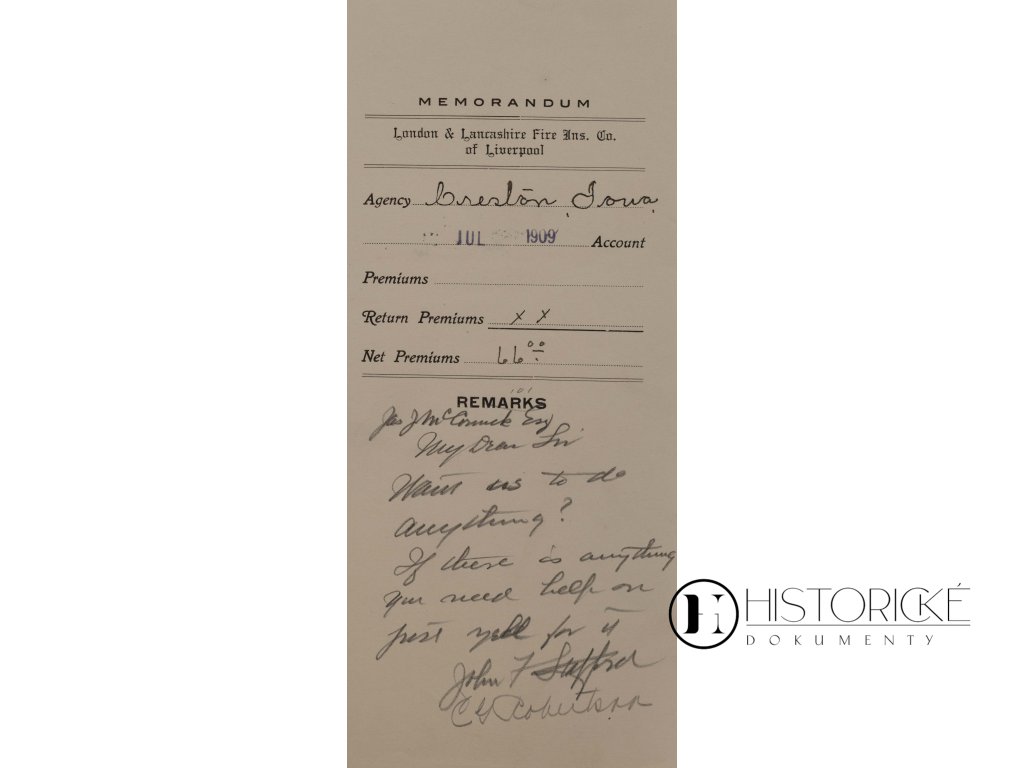 MEMORANDUM
London & Lancashire Fire Ins. Co.
of Liverpool
Agency Creston, Iowa
JUL 1909 Account
Premiums
Return Premiums x x
Net Premiums 66 00
REMARKS
Jas J McCormick Esq
My Dear Sir
Want us to do
anything?
If there is anything
you need help on
just yell for it
John F Stafford
C G Robertson
HISTORICKÉ
DOKUMENTY